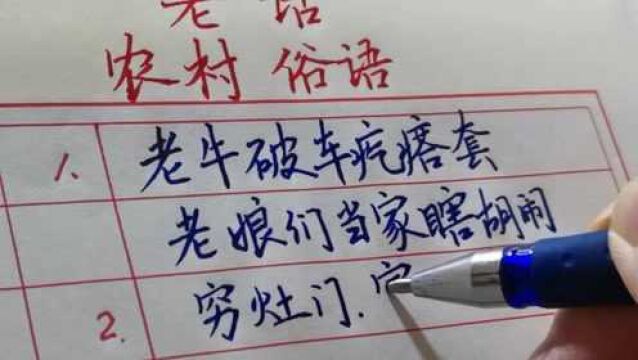 老话
农村俗语
1. 老牛破车疙瘩套
老娘们当家瞎胡闹
2. 穷灶门.